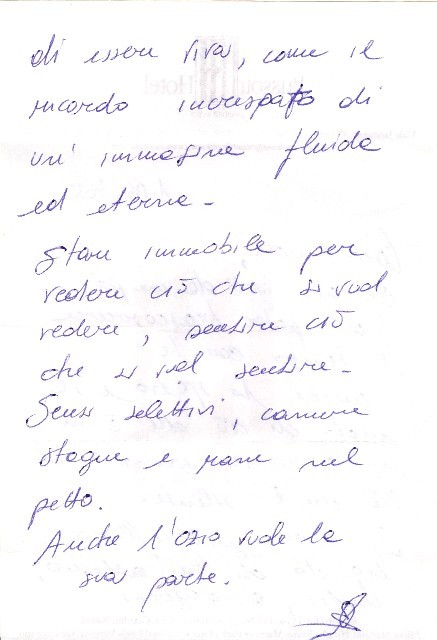 di essere viva, come il
ricordo increspato di
un' immagine fluida
ed eterna -
Stare immobile per
vedere ciò che si vuol
vedere, sentire ciò
che si vuol sentire -
Sensi selettivi, camere
stagne e rane nel
petto.
Anche l'ozio vuole la
sua parte.
Hotel